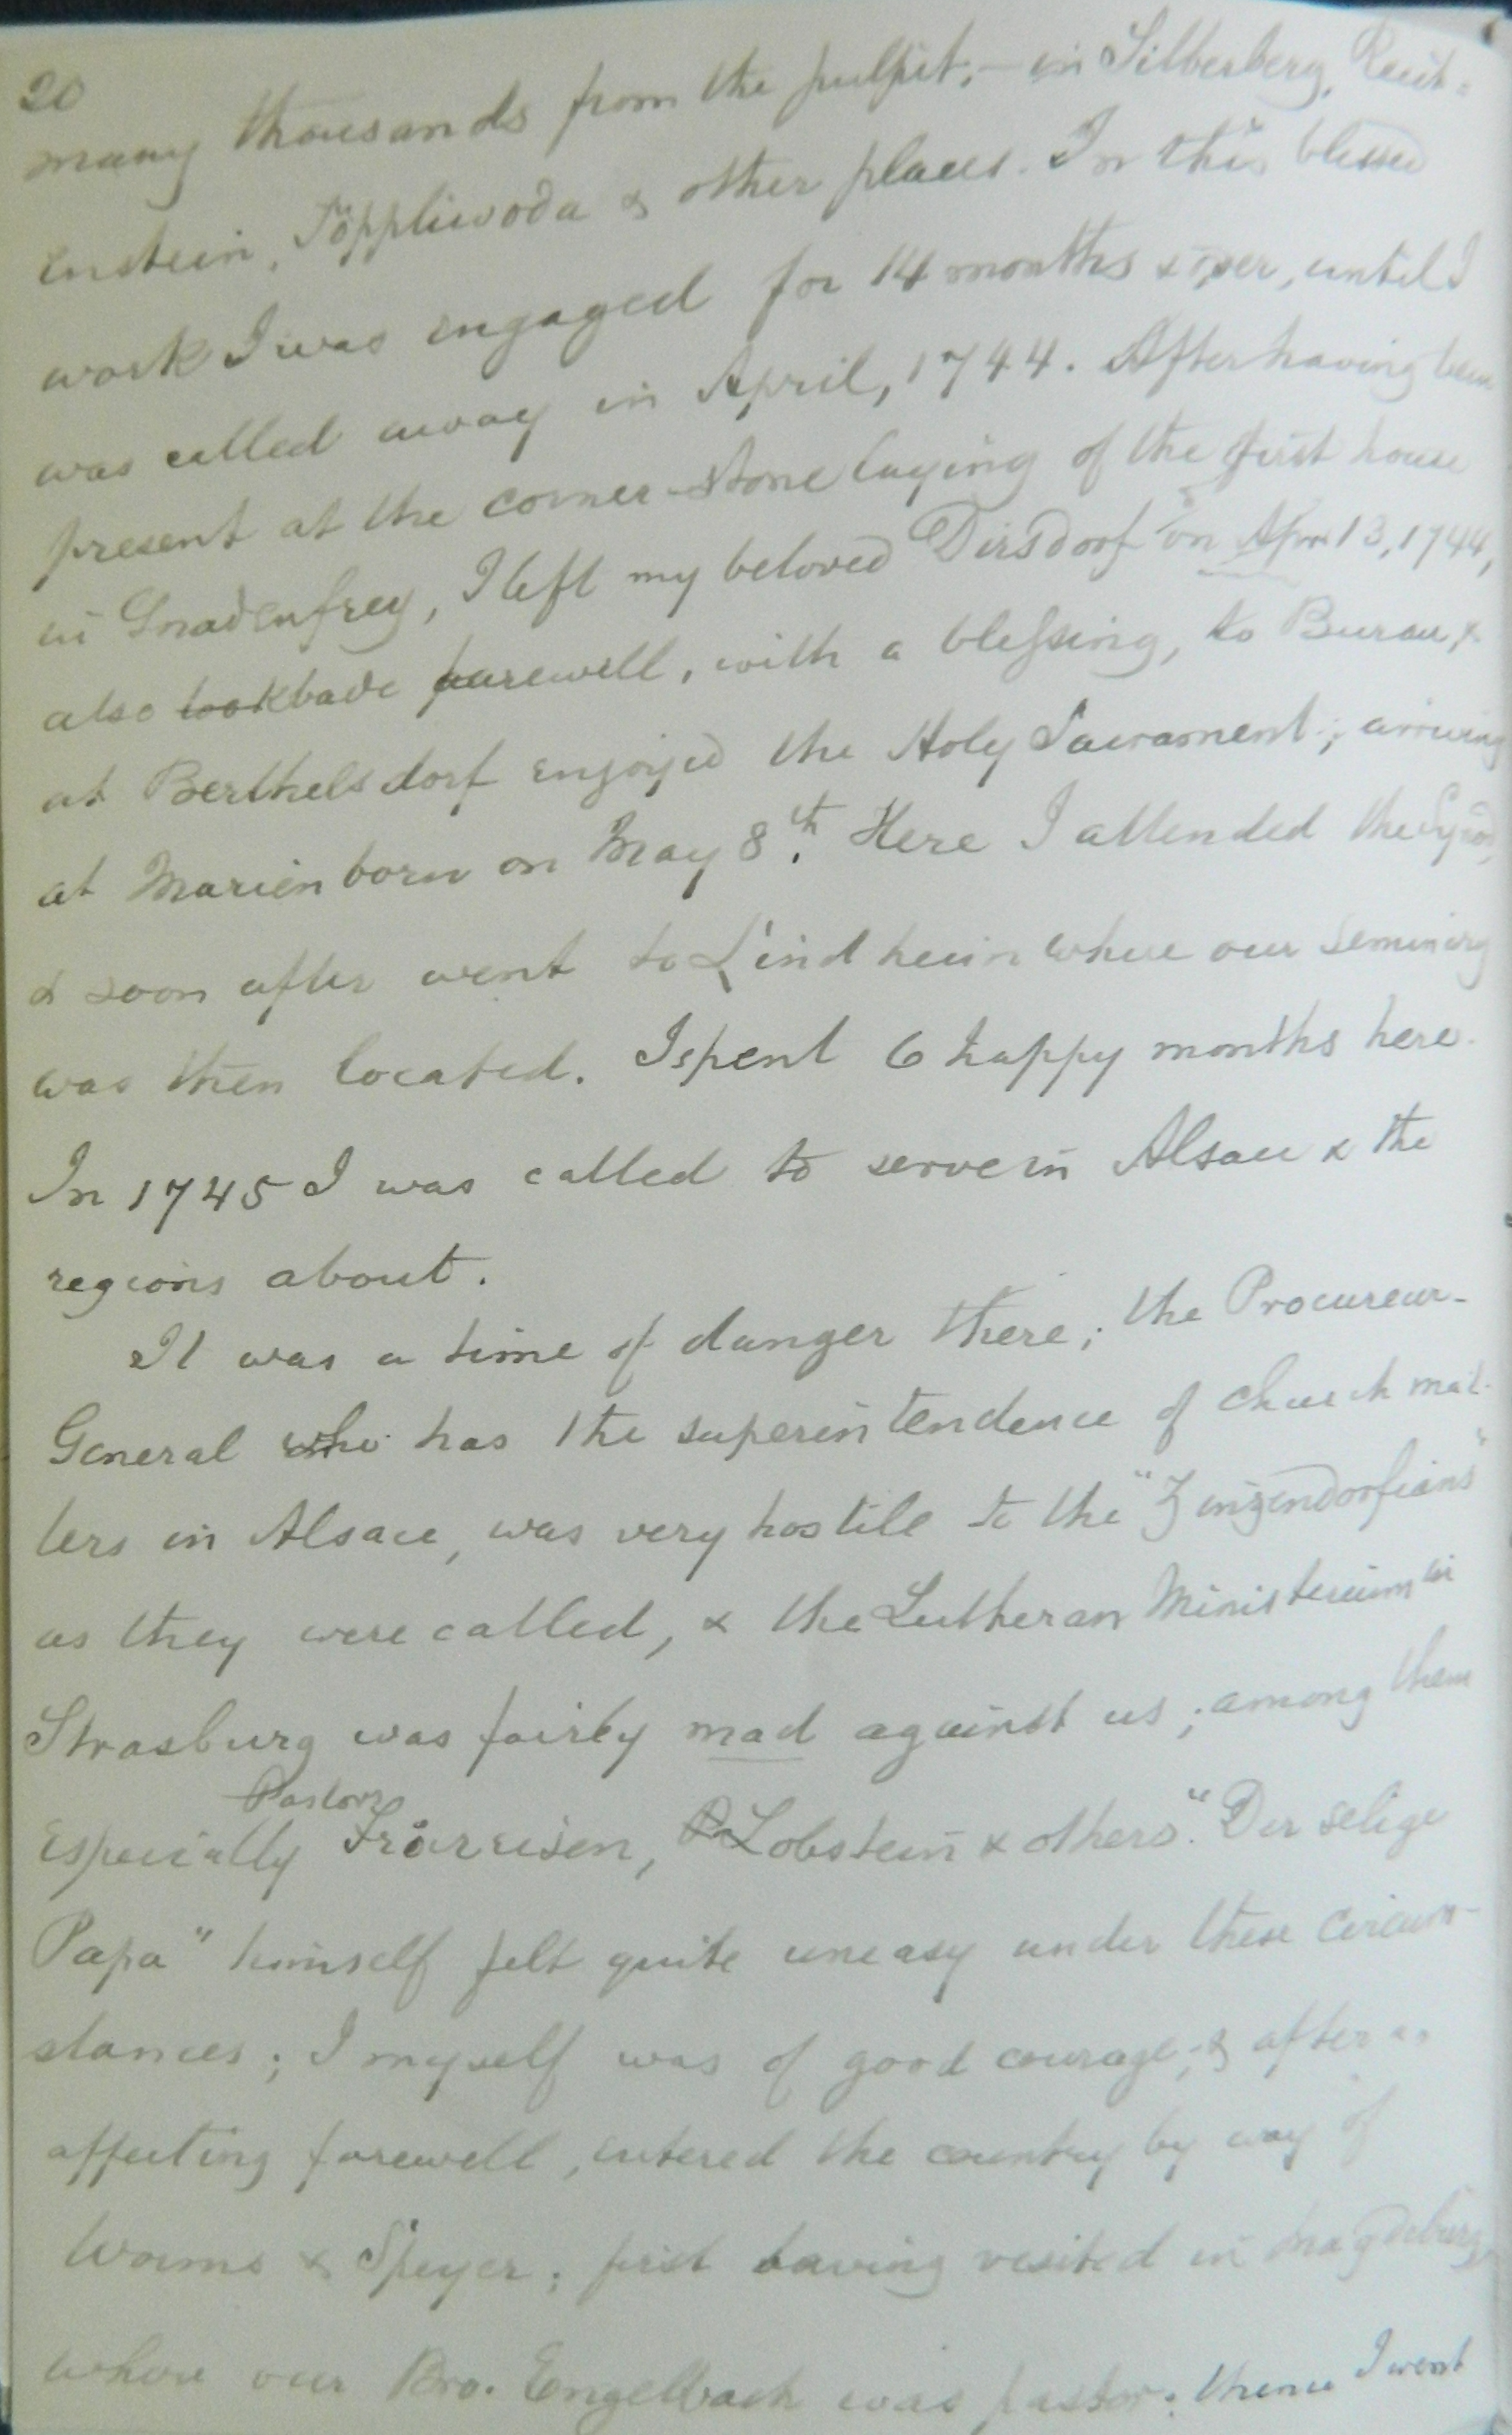 20
many thousands from the pulpit; – in Silberberg, Reich-
enstein, Töppliwoda & other places. In this blessed
work I was engaged for 14 months & over, until I
was called away in April, 1744. After having been
present at the corner-stone laying of the first house
in Gnadenfrey, I left my beloved Dirsdorf on Apr. 13, 1744,
also took bade farewell, with a blessing, to Burau, &
at Berthelsdorf enjoyed the Holy Sacrament; arriving
at Marienborn on May 8th. Here I attended the Synod,
& soon after went to Lindheim where our seminary
was then located. I spent 6 happy months here.
In 1745 I was called to serve in Alsace & the
regions about.
It was a time of danger there; the Procureur-
General who has the superintendence of church mat-
ters in Alsace, was very hostile to the "Zinzendorfians"
as they were called, & the Lutheran Ministerium in
Strasburg was fairly mad against us; among them
Pastors
especially Fröreisen, Lobstein & others. "Der selige
Papa" himself felt quite uneasy under these circum-
stances; I myself was of good courage, & after an
affecting farewell, entered the country by way of
Worms & Speyer; first having visited in Magdeburg
where our Bro. Engelbach was pastor; thence I went